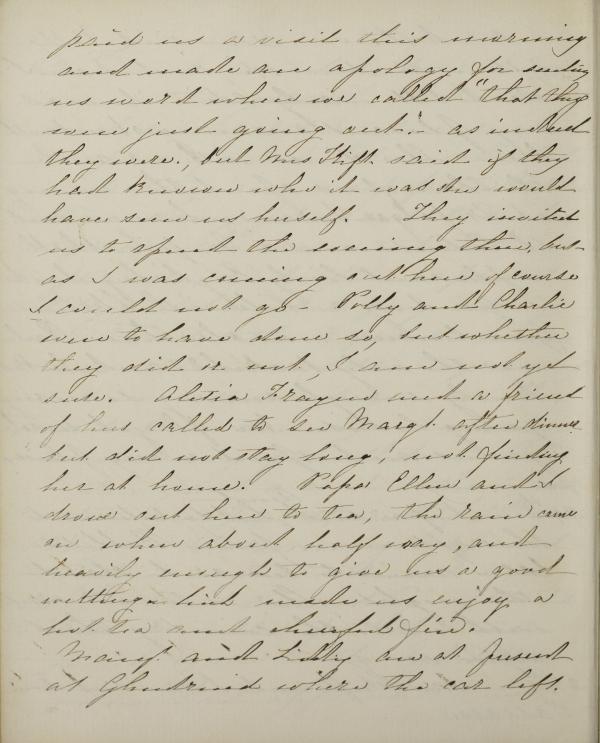 paid us a visit this morning
and made an apology for sending
us word when we called "that they
were just going out." - as indeed
they were, but Mrs said if they
had known who it was she would
have seen us herself. They invited
us to spend the evening there, but
as I was coming out here of course
I could not go - Polly and Charlie
were to have done so, but whether
they did or not, I am not yet
sure. and a friend
of hers called to see Margt. after dinner
but did not stay long, not finding
her at home. Papa Ellen and I
drove out here to tea, the rain came
on when about half way, and
heavily enough to give us a good
wetting which made us enjoy a
hot tea and cheerful fire.
Margt. and are at present
at where the car left.